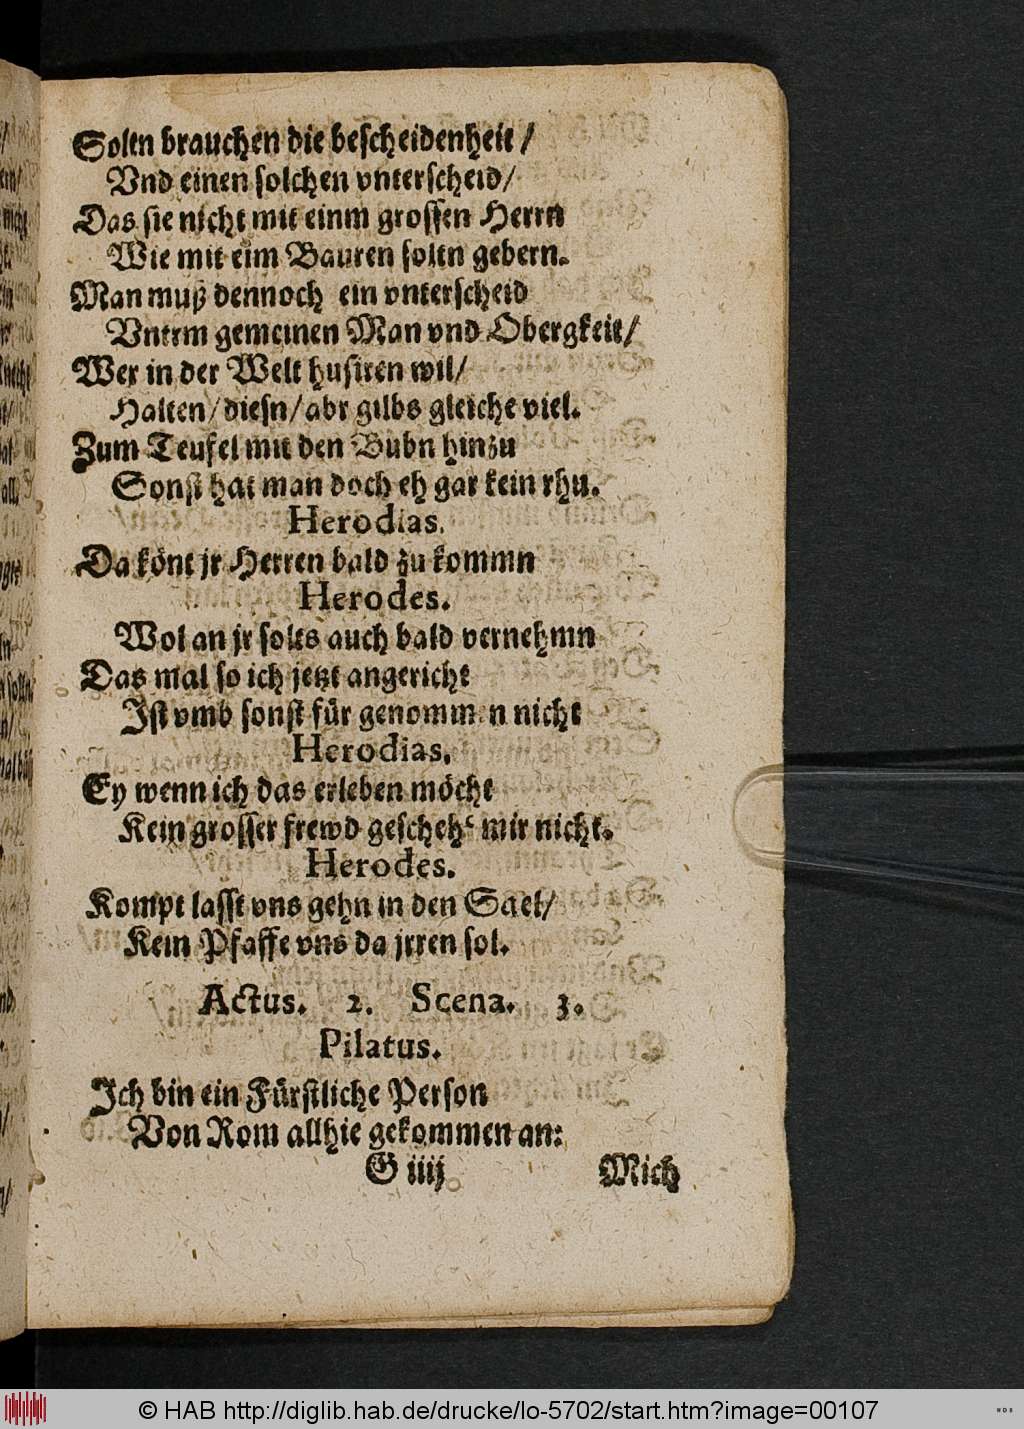 Soltn brauchen die bescheidenheit /
Vnd einen solchen vnterscheid /
Das sie nicht mit einm grossen Herrn
Wie mit eim Bauren soltn gebern.
Man muß dennoch ein vnterscheid
Vnterm gemeinen Man vnd Obergkeit /
Wer in der Welt husiren wil /
Halten / diesn / abr gilbs gleiche viel.
Zum Teufel mit den Bubn hinzu
Sonst hat man doch eh gar kein rhu.
Herodias.
Da könt jr Herren bald zu kommn
Herodes.
Wol an jr solts auch bald vernehmn
Das mal so ich jetzt angericht
Ist vmb sonst für genommen nicht
Herodias.
Ey wenn ich das erleben möcht
Kein grosser frewd gescheh' mir nicht.
Herodes.
Kompt lasst vns gehn in den Sael /
Kein Pfaffe vns da jrren sol.
Actus. 2. Scena. 3.
Pilatus.
Ich bin ein Fürstliche Person
Von Rom allhie gekommen an:
G iiij
Mich
© HAB http://diglib.hab.de/drucke/lo-5702/start.htm?image=00107